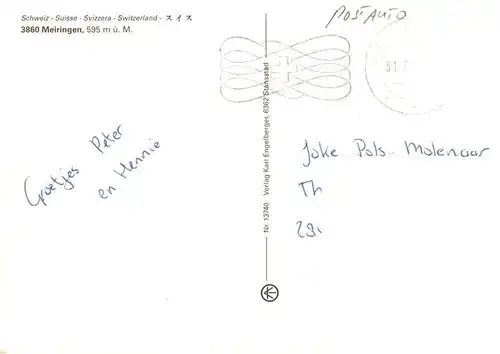 Schweiz - Suisse - Svizzera - Switzerland - スイス
3860 Meiringen, 595 m ü. M.
POSTAUTO
31.7
Groetjes Peter
en Hennie
Nr. 13740 Verlag Karl Engelberger, 6362 Stansstad
Joke Pols-Molenaar
Th
29